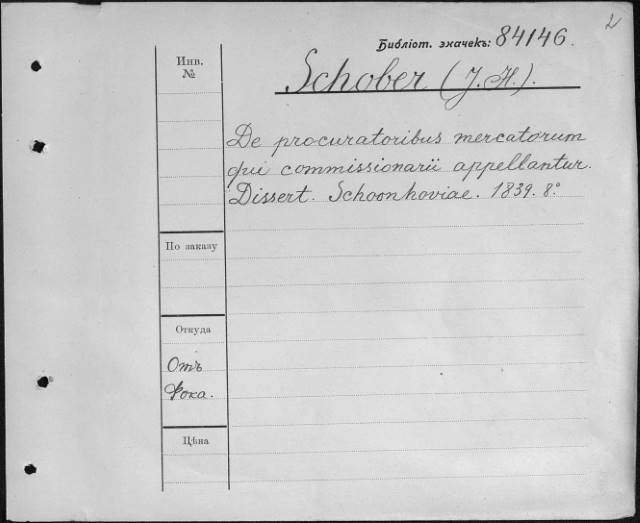 2
Библіот. значекъ: 84146.
Инв.
№
Schober (J. H.).
De procuratoribus mercatorum
qui commissionarii appellantur.
Dissert. Schoonhoviae. 1839. 8°
По заказу
Откуда
Отъ
Фока.
Цѣна